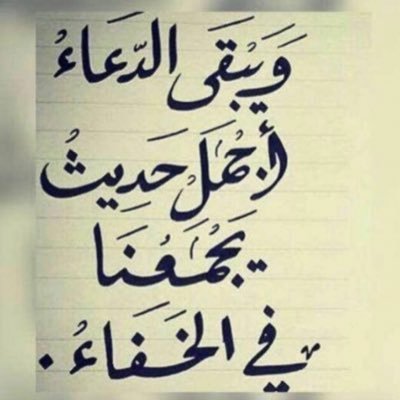 وَيَبْقَى الدَّعَاءُ
أَجْمَلْ حَدِيثُ
يَجْمَعُنَا
فِي الخَفَاءُ .